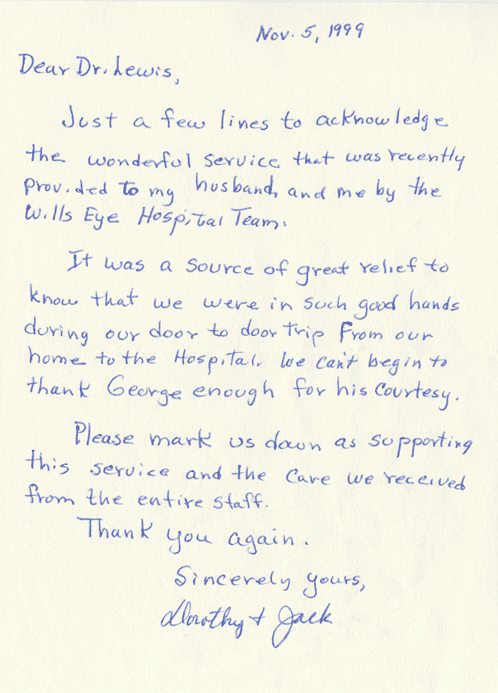 Nov. 5, 1999
Dear Dr. Lewis,
Just a few lines to acknowledge
the wonderful service that was recently
provided to my husband, and me by the
Wills Eye Hospital Team.
It was a source of great relief to
know that we were in such good hands
during our door to door trip from our
home to the Hospital. We can't begin to
thank George enough for his courtesy.
Please mark us down as supporting
this service and the care we received
from the entire staff.
Thank you again.
Sincerely yours,
Dorothy + Jack